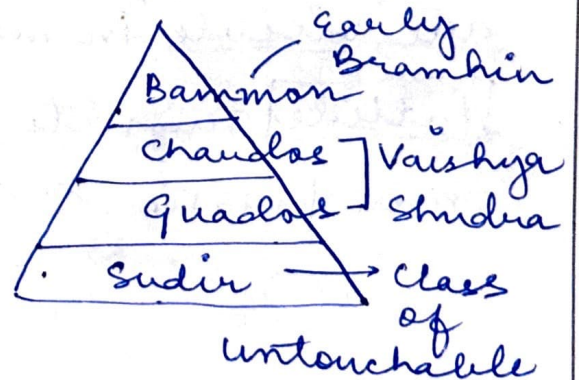 Early
Bramhin
Bammon
Chaudos
Vaishya
Guados
Shudra
Sudir
Class
of
untouchable